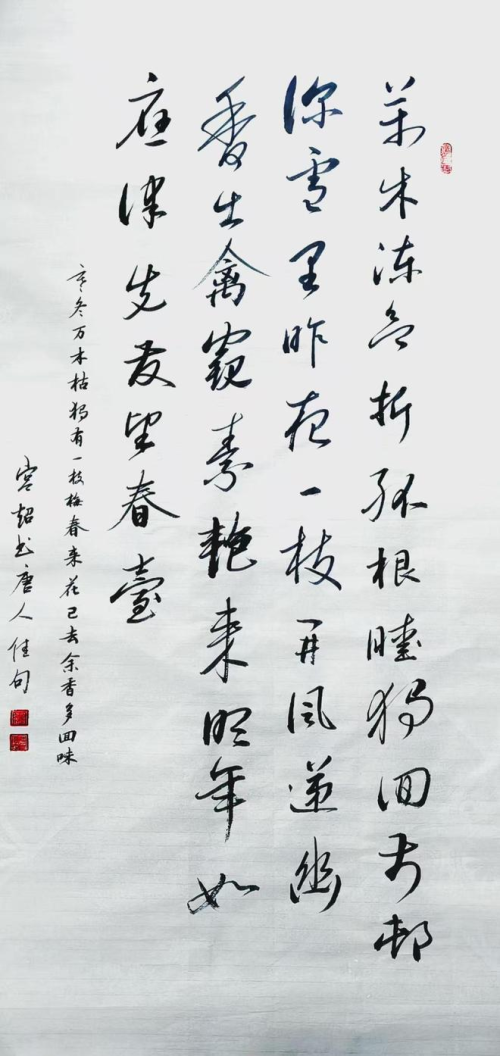 萬木冻欲折孤根暖独回前邨
深雪里昨夜一枝开风递幽
香出禽窥素艳来明年如
应律先发望春臺
寒冬万木枯独有一枝梅春来花已去余香多回味
宫超书唐人佳句